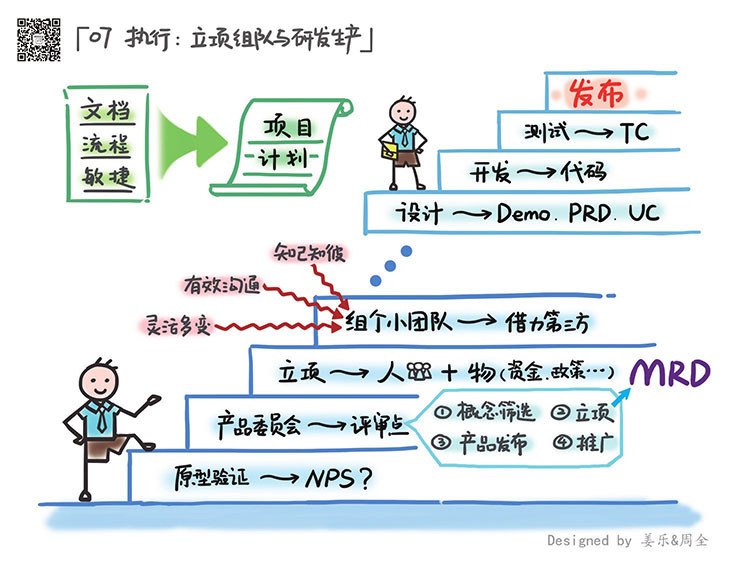 「07 执行：立项组队与研发生产」
文档
流程
敏捷
项目
计划
发布
测试→TC
开发→代码
设计→Demo. PRD. UC
知己知彼
有效沟通
灵活多变
组个小团队→借力第三方
立项→人+物(资金、政策…)
MRD
产品委员会→评审点
①概念筛选 ②立项
③产品发布 ④推广
原型验证→NPS？
Designed by 姜乐&周全